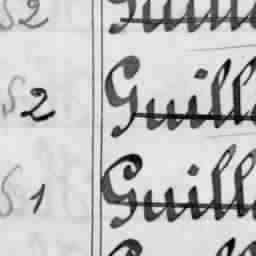 52 Guill
52 Guill
51 Guill